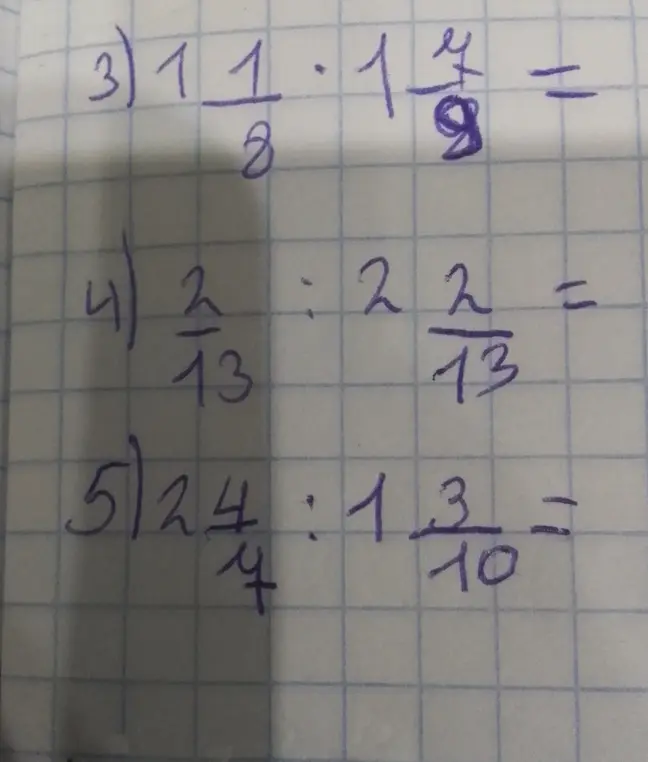 3) 1 1/8 · 1 7/9 =
4) 2/13 : 2 2/13 =
5) 2 4/7 : 1 3/10 =